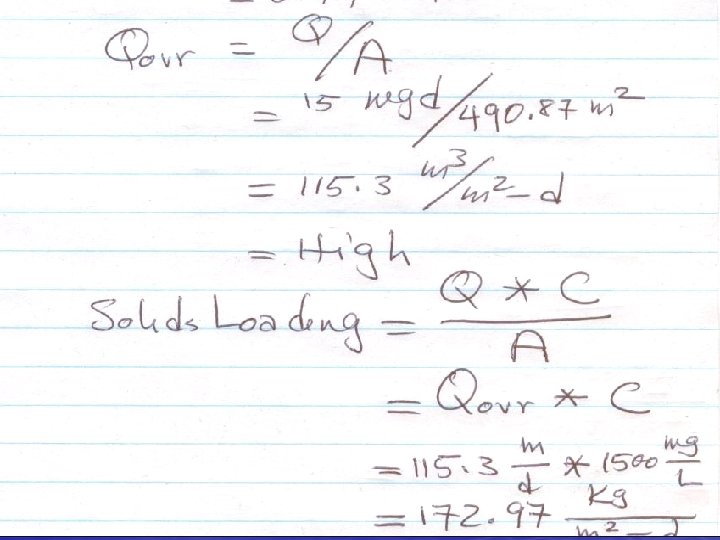 Qovr = Q/A
= 15 mgd/490.87 m²
= 115.3 m³/m²-d
= High
Solids Loading = Q * C / A
= Qovr * C
= 115.3 m/d * 1500 mg/L
= 172.97 Kg/m²-d